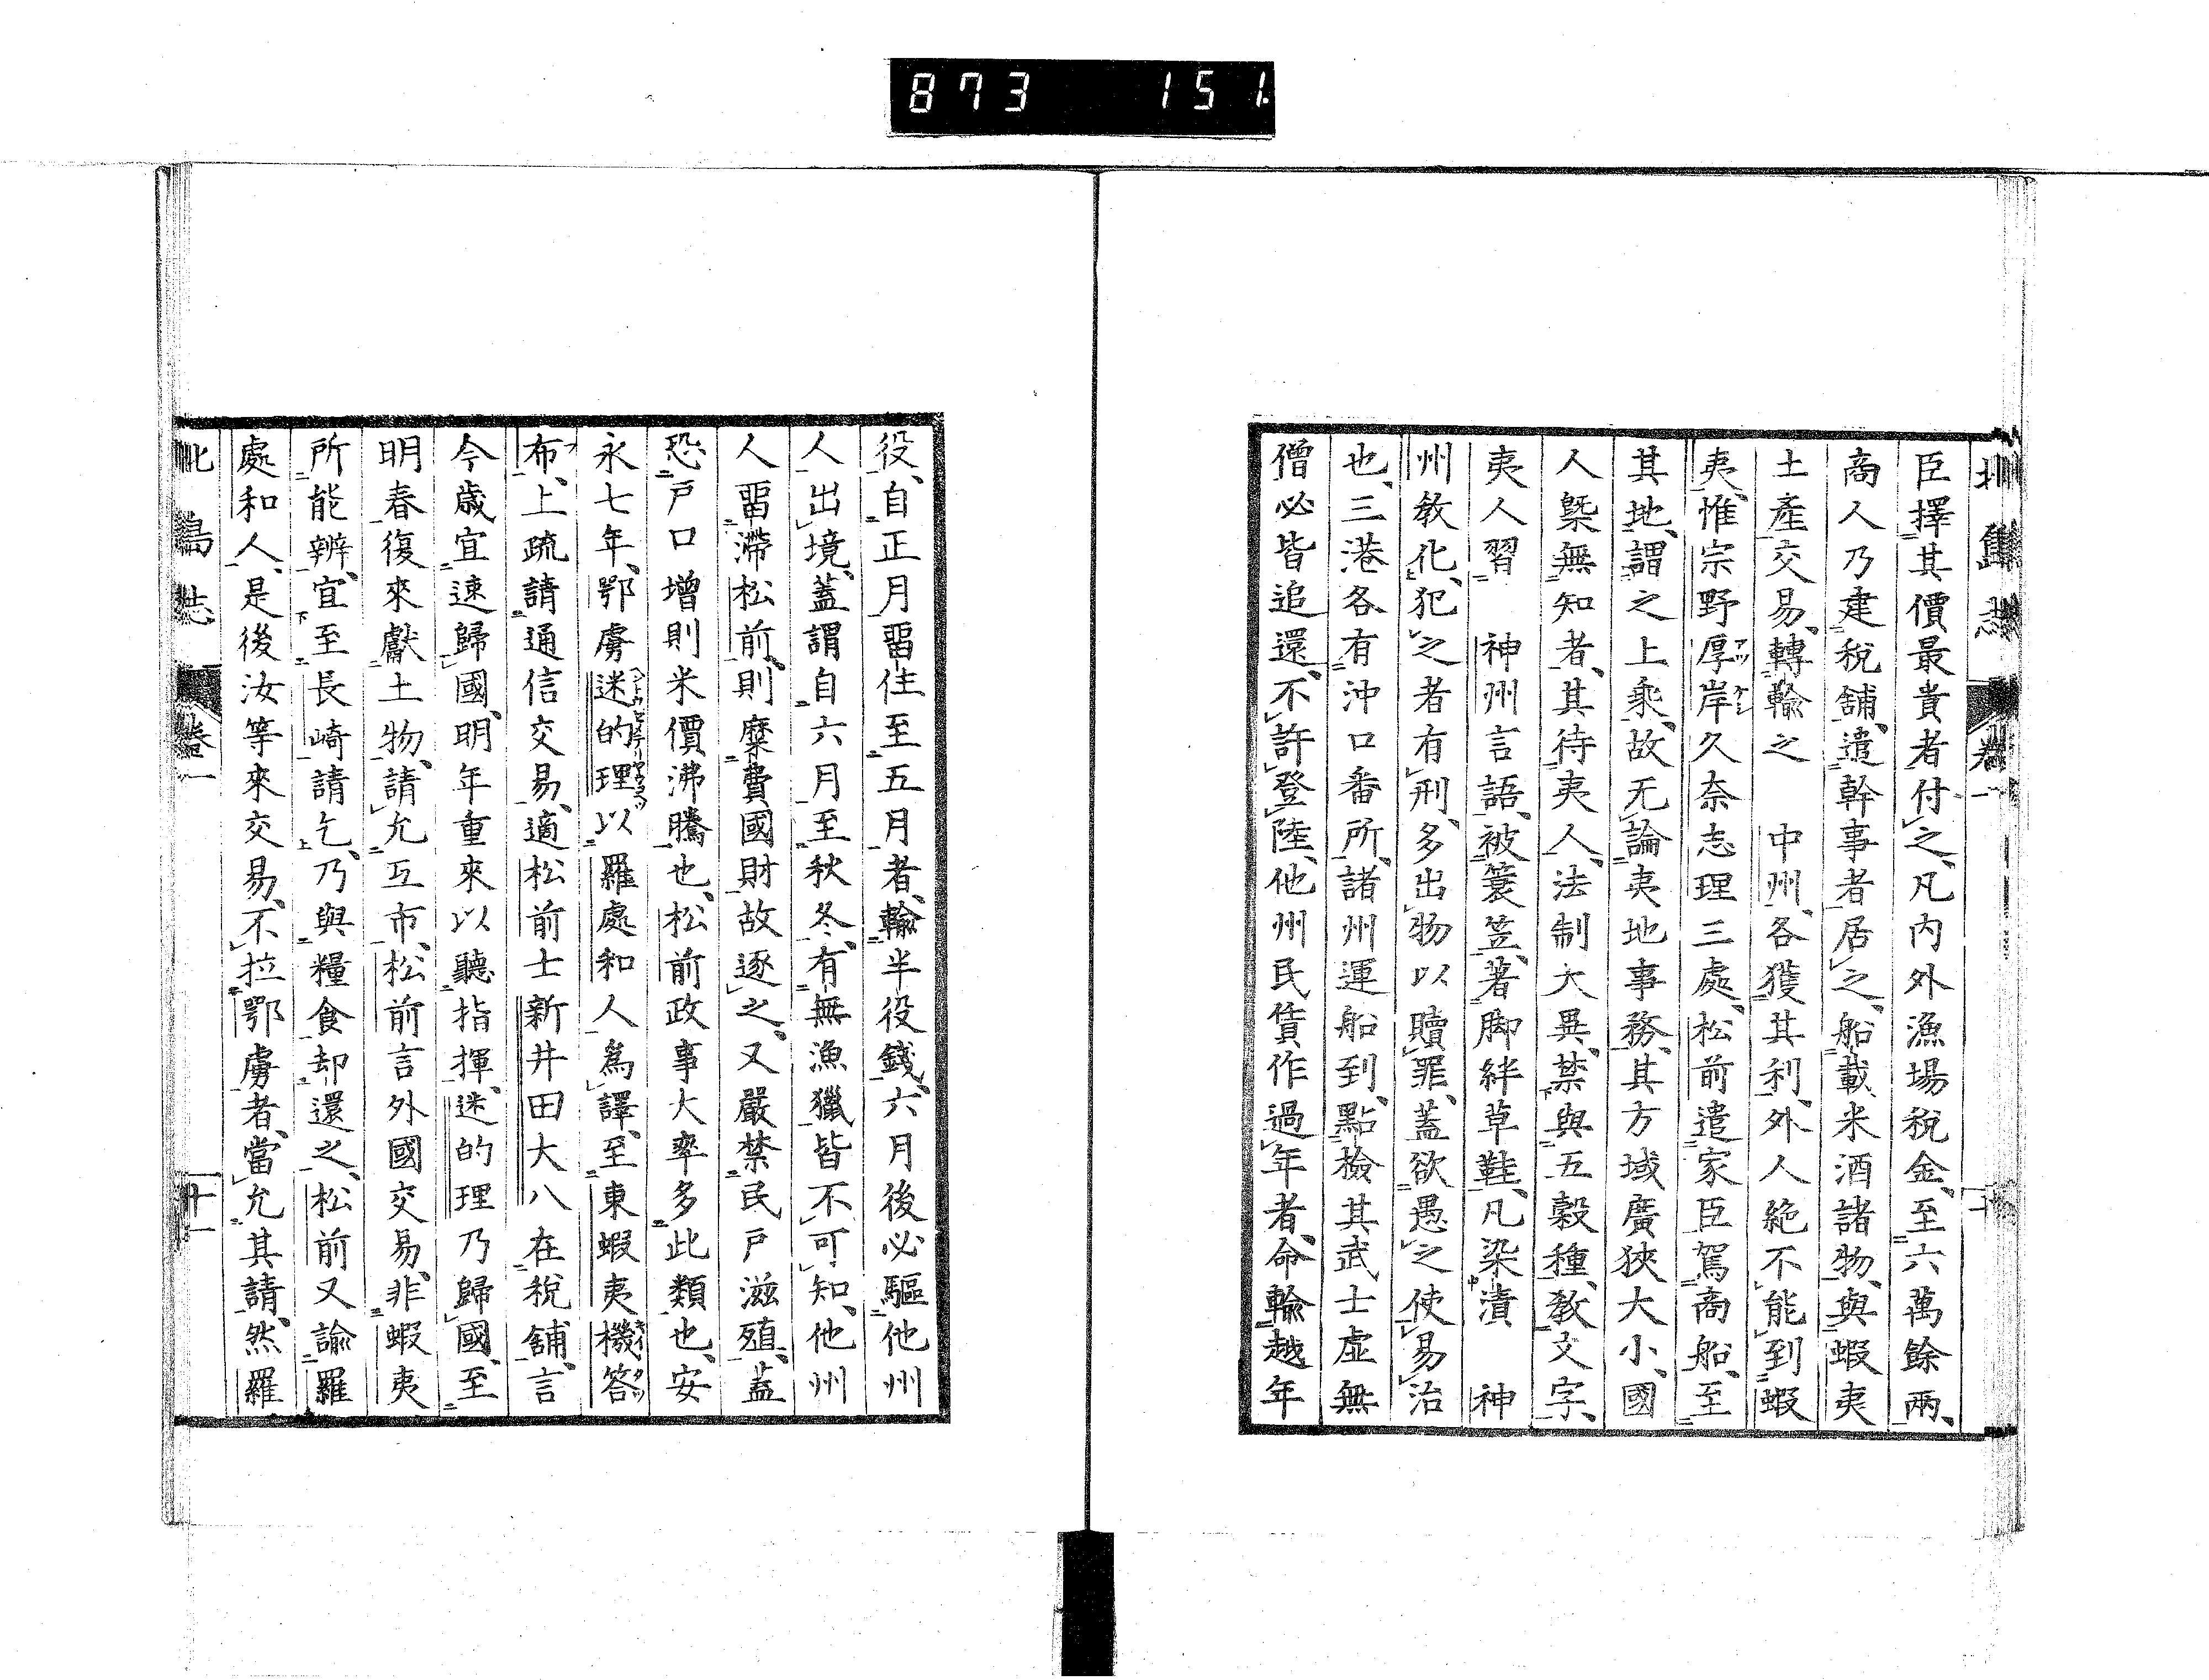 873 151
北島志 卷一 十
臣擇其價最貴者付之、凡内外漁場稅金、至六萬餘兩、
商人乃建稅舖、遣幹事者居之、船載米酒諸物、與蝦夷
土產交易、轉輸之 中州、各獲其利、外人絶不能到蝦
夷、惟宗野厚岸久奈志理三處、松前遣家臣駕商船、至
其地、謂之上乘、故无論夷地事務、其方域廣狹大小、國
人槩無知者、其待夷人、法制大異、禁與五穀種、敎文字、
夷人習 神州言語、被簑笠、著脚絆草鞋、凡染漬 神
州敎化、犯之者有刑、多出物以贖罪、蓋欲愚之使易治
也、三港各有沖口番所、諸州運船到、點檢其武士虛無
僧必皆追還、不許登陸、他州民賃作過年者、命輸越年
役、自正月畱住至五月者、輸半役錢、六月後必驅他州
人出境、蓋謂自六月至秋冬、有無漁獵皆不可知、他州
人畱滯松前、則糜費國財故逐之、又嚴禁民戶滋殖、蓋
恐戶口增則米價沸騰也、松前政事大率多此類也、安
永七年、鄂虜迷的理以羅處和人爲譯、至東蝦夷機答
布、上疏請通信交易、適松前士新井田大八在稅舖、言
今歲宜速歸國、明年重來以聽指揮、迷的理乃歸國、至
明春復來獻土物、請允互市、松前言外國交易、非蝦夷
所能辨、宜至長崎請乞、乃與糧食却還之、松前又諭羅
處和人、是後汝等來交易、不拉鄂虜者、當允其請、然羅
北島志 卷一 十一